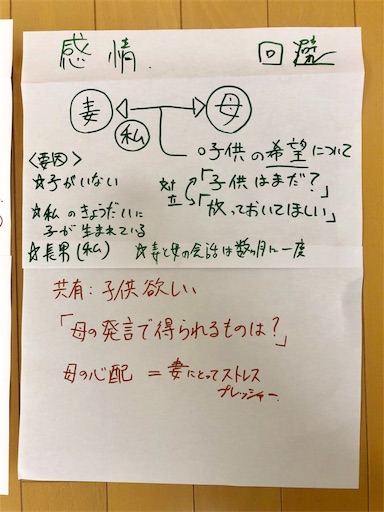 感情.
回避
妻
母
私
○子供の希望について
対立
「子供はまだ?」
「放っておいてほしい」
<要因>
☆子がいない
☆私のきょうだいに
子が生まれている
☆長男(私)
☆妻と母の会話は数ヶ月に一度
共有:子供欲しい
「母の発言で得られるものは?」
母の心配 = 妻にとってストレス
プレッシャー.